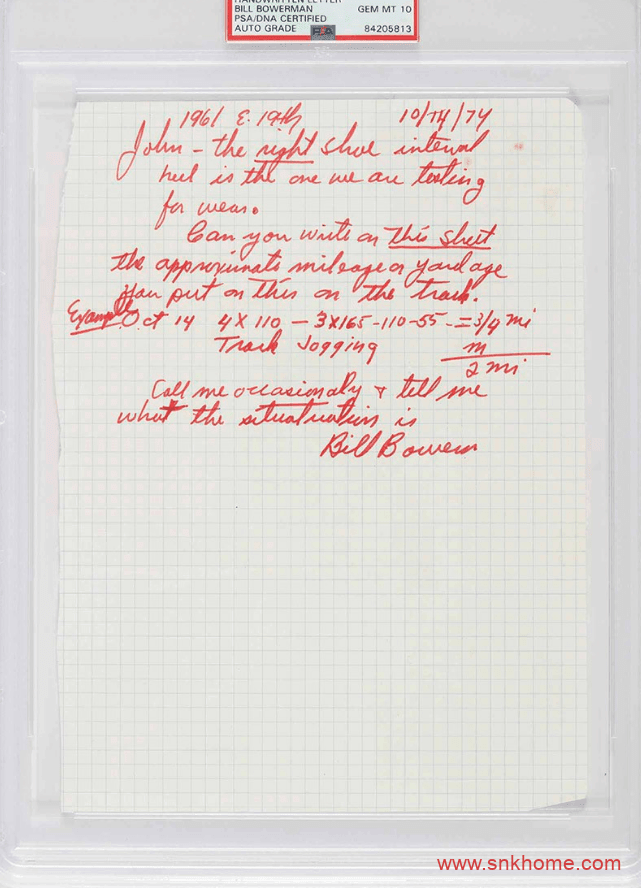 HANDWRITTEN LETTER
BILL BOWERMAN
PSA/DNA CERTIFIED
AUTO GRADE
GEM MT 10
84205813
PSA
1961 E. 19th 10/14/74
John - the right shoe internal
heel is the one we are testing
for wear.
Can you write on this sheet
the approximate mileage or yardage
you put on this on the track.
Example Oct 14 4 X 110 - 3X165-110-55 - = 3/4 mi
Track Jogging m
2 mi
Call me occasionaly & tell me
what the situatuation is
Bill Bowerm
www.snkhome.com